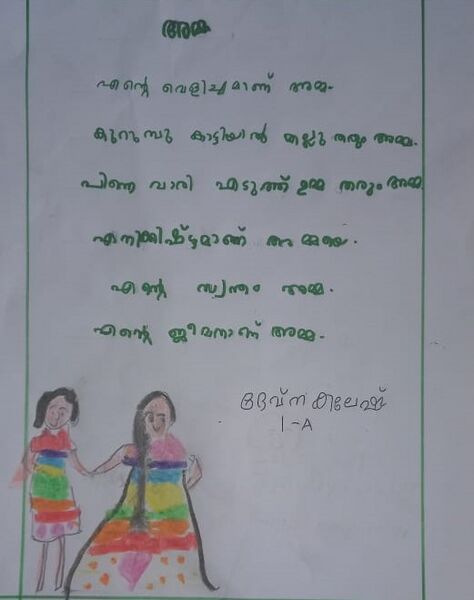 അമ്മ
എന്റെ വെളിച്ചമാണ് അമ്മ.
കുറുമ്പു കാട്ടിയാൽ തല്ലു തരും അമ്മ.
പിന്നെ വാരി എടുത്ത് ഉമ്മ തരും അമ്മ
എനിക്കിഷ്ടമാണ് അമ്മയെ.
എന്റെ സ്വന്തം അമ്മ.
എന്റെ ജീവനാണ് അമ്മ.
1-A